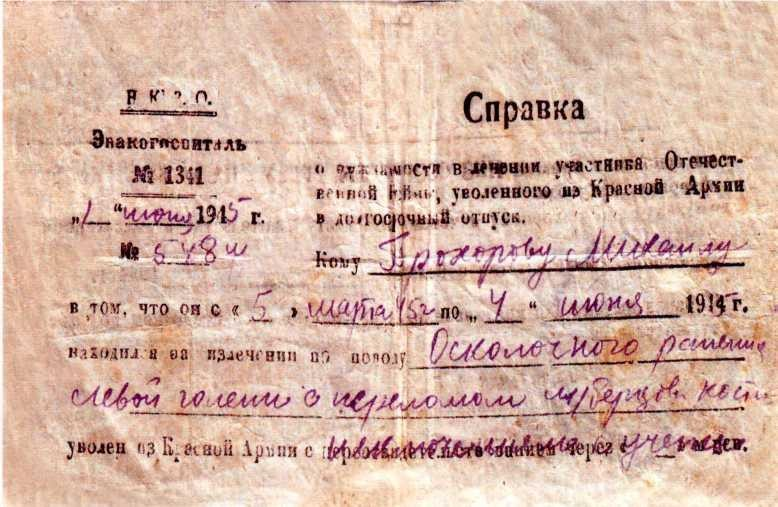 Н.К.З.О.
Эвакогоспиталь
№ 1341
„1“ июня 1945 г.
№ 548
Справка
о нуждаемости в лечении участника Отечест-
венной войны, уволенного из Красной Армии
в долгосрочный отпуск.
Кому Прохорову Михаилу
в том, что он с « 5 » марта 45г по „ 4 “ июня 1945 г.
находился на излечении по поводу Осколочного ранения
левой голени с переломом м/берцов. кости
уволен из Красной Армии с переосвидетельствованием через с учета м-цев.